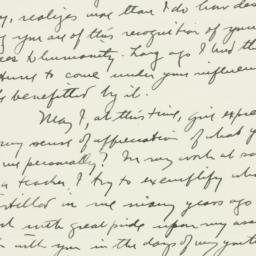 , realizes more than I do how des
you are of this recognition of your
to humanity. Long ago I had the
to come under your influence
benefitted by it.
May I, at this time, give expre
my sense of appreciation of what y
me personally? In my work at
a teacher, I try to exemplify wha
instilled in me many years ago
with great pride upon my ass
with you in the days of my youth